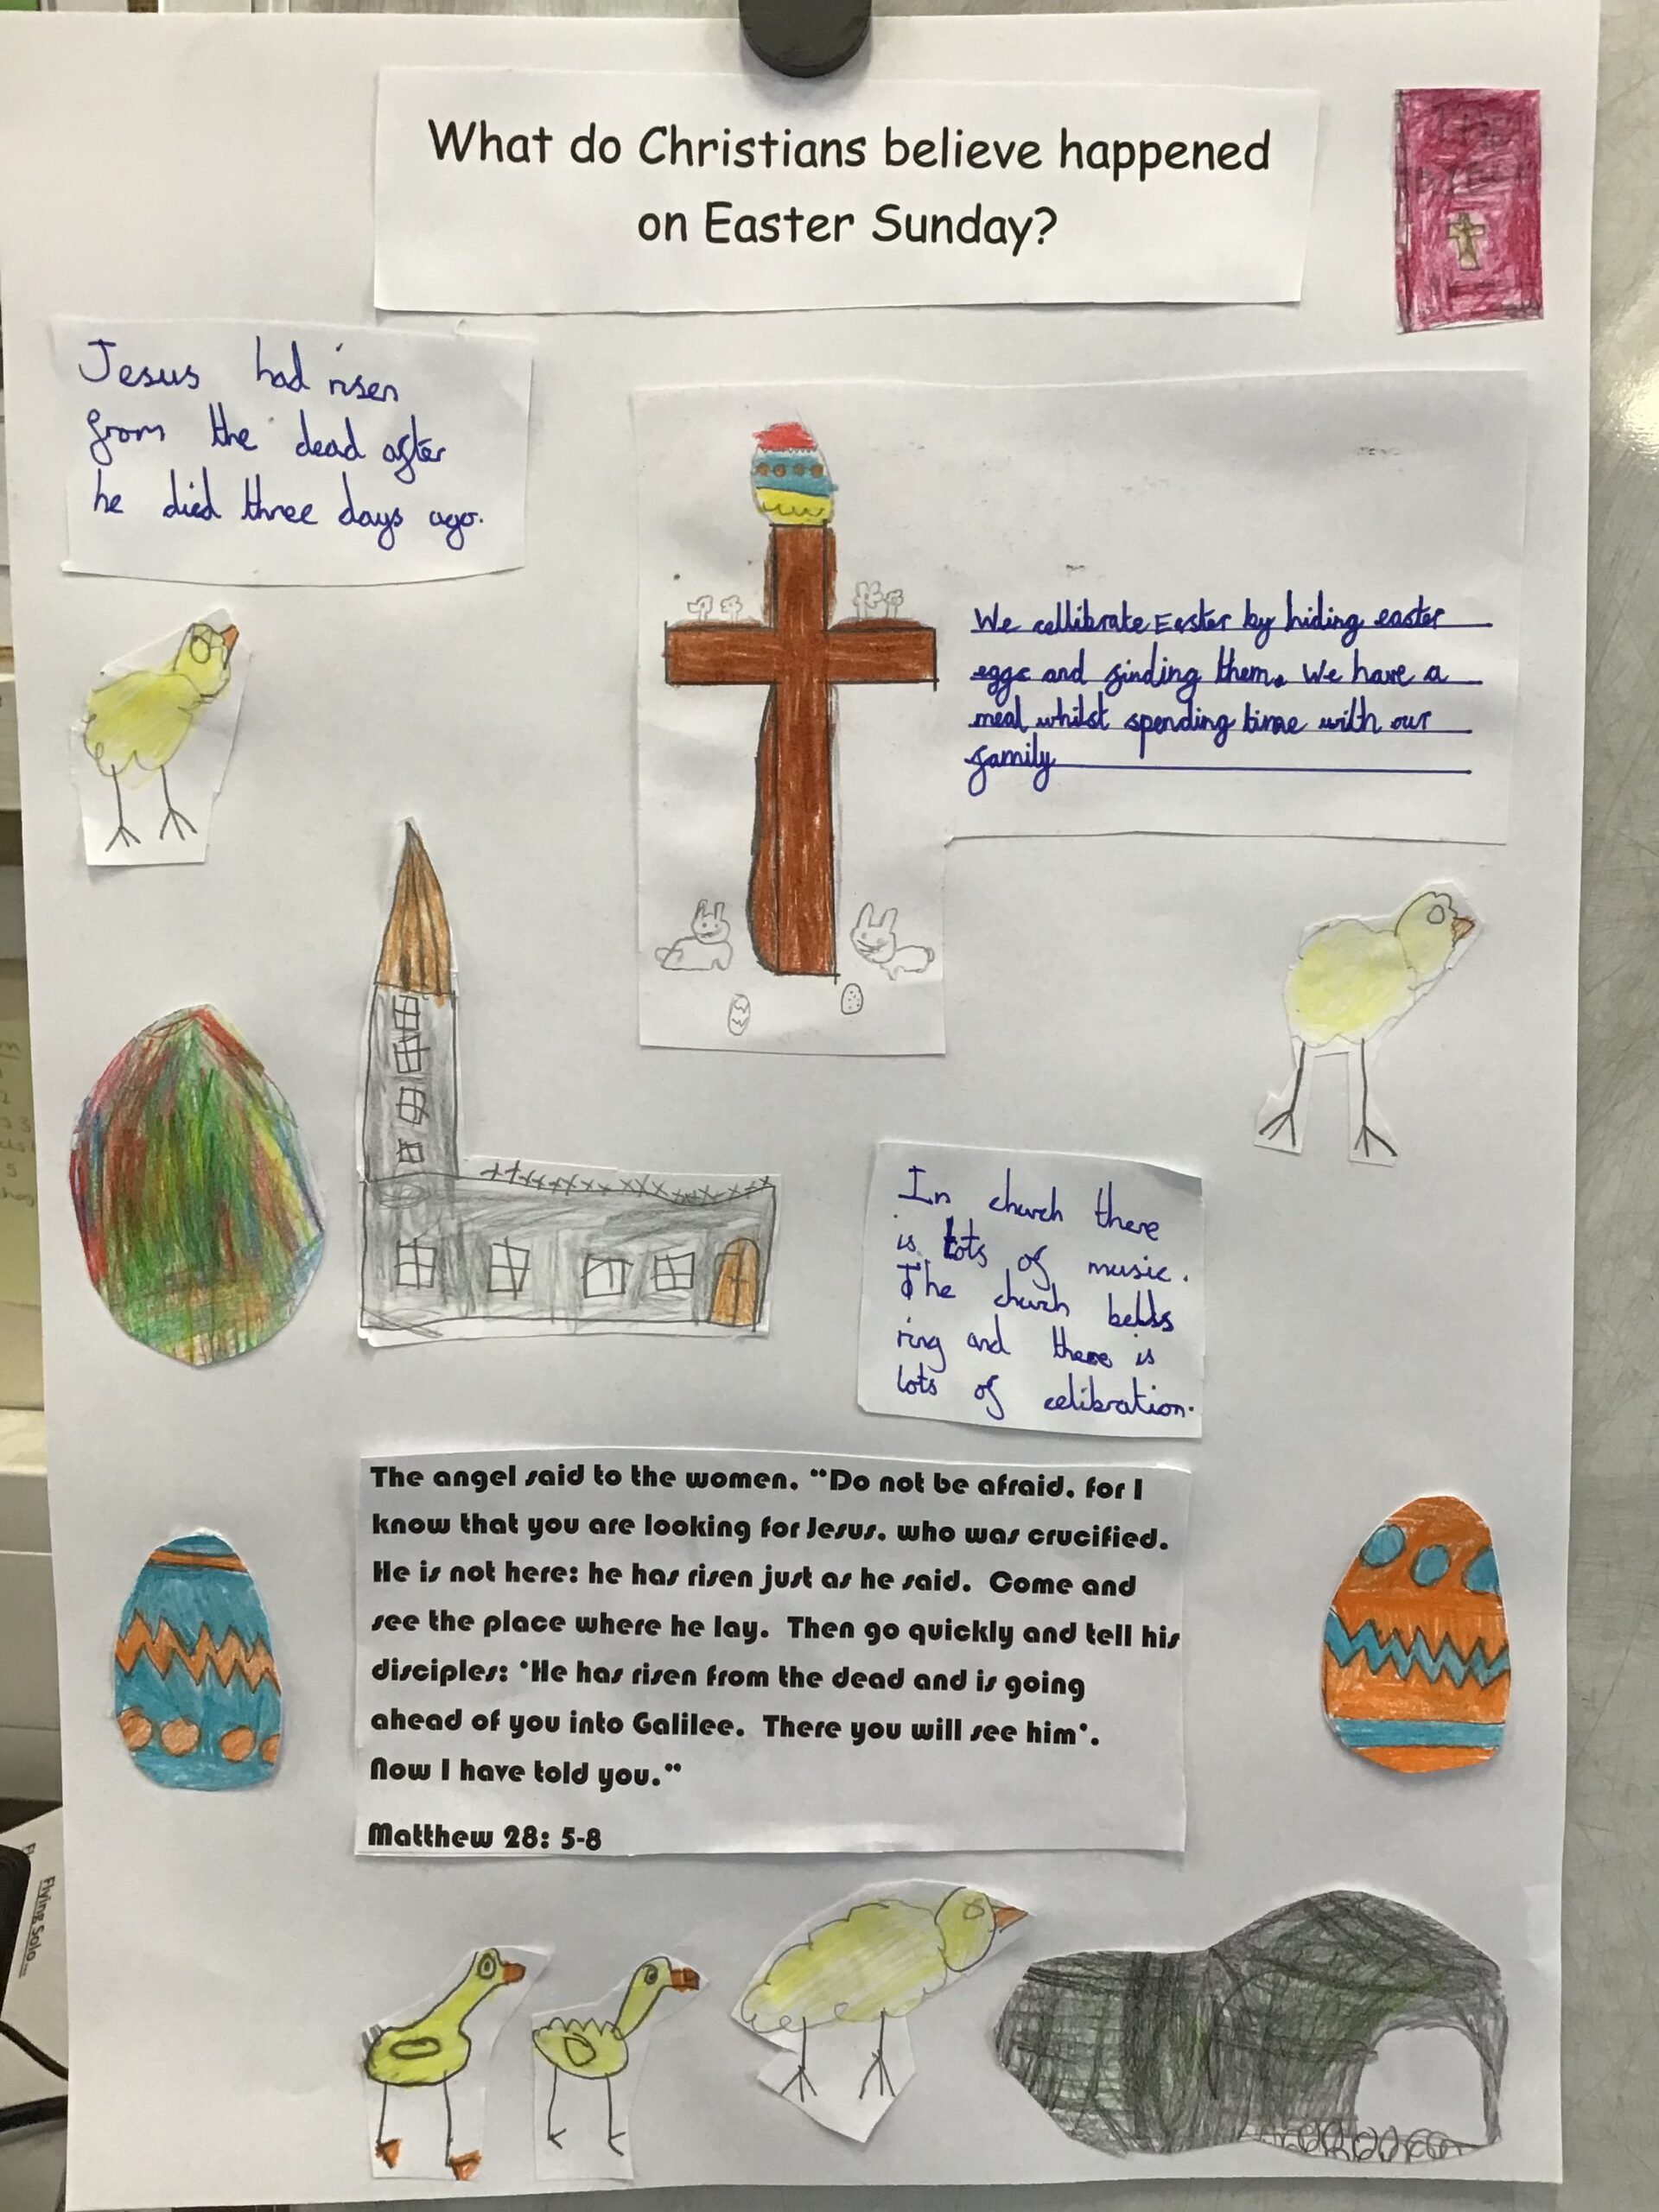 What do Christians believe happened
on Easter Sunday?
Jesus had risen
from the dead after
he died three days ago.
We cellibrate Easter by hiding easter
eggs and finding them. We have a
meal whilst spending time with our
family
In church there
is lots of music.
The church bells
ring and there is
lots of celibration.
The angel said to the women. "Do not be afraid. for I
know that you are looking for Jesus. who was crucified.
He is not here: he has risen just as he said. Come and
see the place where he lay. Then go quickly and tell his
disciples: 'He has risen from the dead and is going
ahead of you into Galilee. There you will see him'.
Now I have told you."
Matthew 28: 5-8
Flying Solo